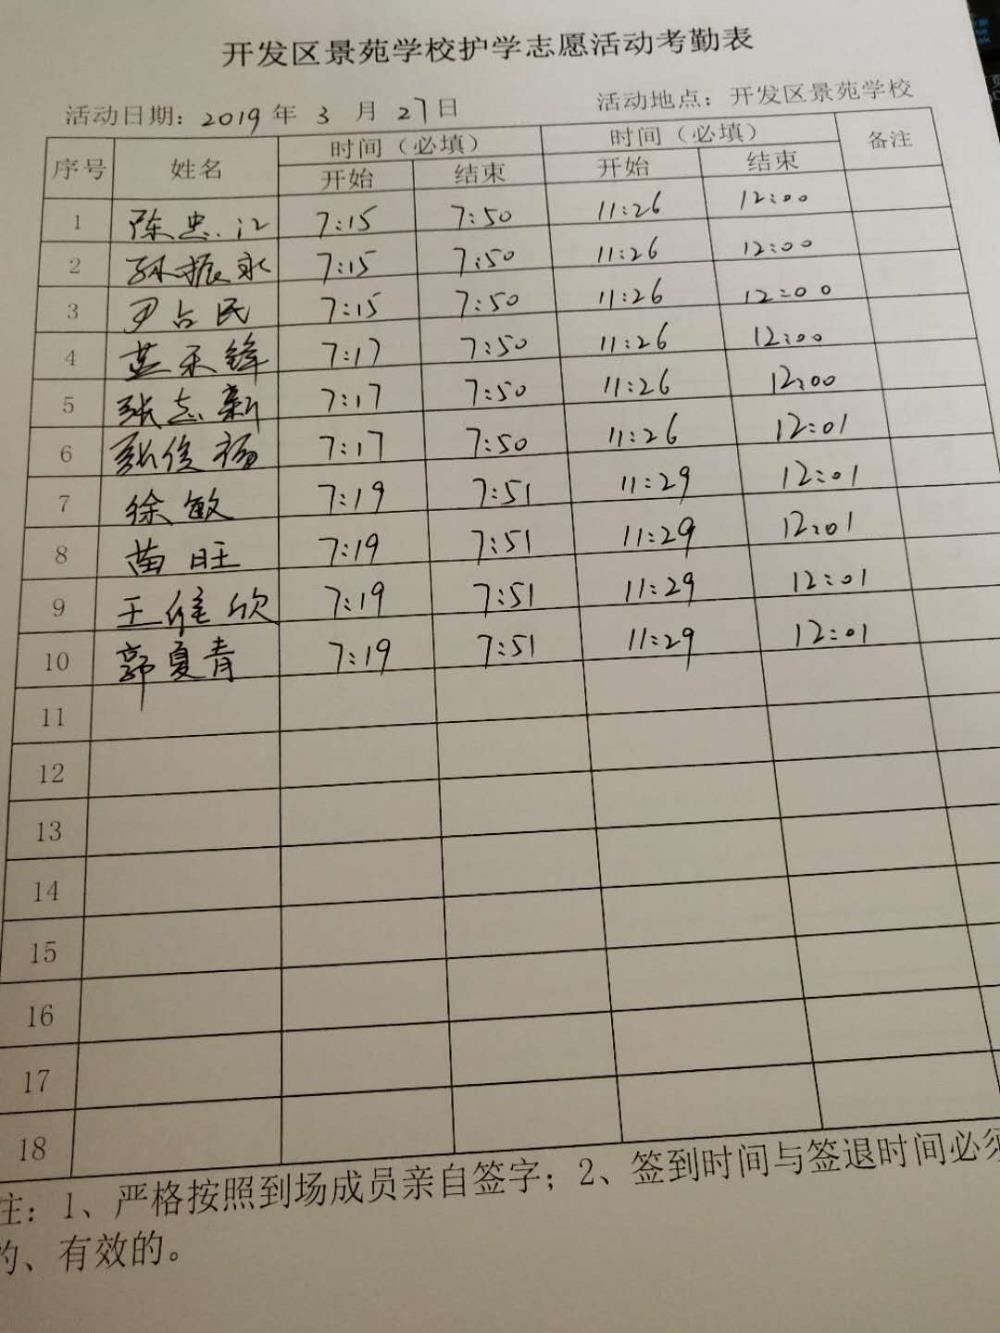 开发区景苑学校护学志愿活动考勤表
活动日期：2019 年 3 月 27日 活动地点：开发区景苑学校
序号 姓名 时间（必填） 时间（必填） 备注
开始 结束 开始 结束
1 陈忠江 7:15 7:50 11:26 12:00
2 孙振永 7:15 7:50 11:26 12:00
3 尹占民 7:15 7:50 11:26 12:00
4 7:17 7:50 11:26 12:00
5 张志新 7:17 7:50 11:26 12:00
6 张俊杨 7:17 7:50 11:26 12:01
7 徐敏 7:19 7:51 11:29 12:01
8 苗旺 7:19 7:51 11:29 12:01
9 王维欣 7:19 7:51 11:29 12:01
10 郭夏青 7:19 7:51 11:29 12:01
11
12
13
14
15
16
17
18
注：1、严格按照到场成员亲自签字；2、签到时间与签退时间必须
的、有效的。